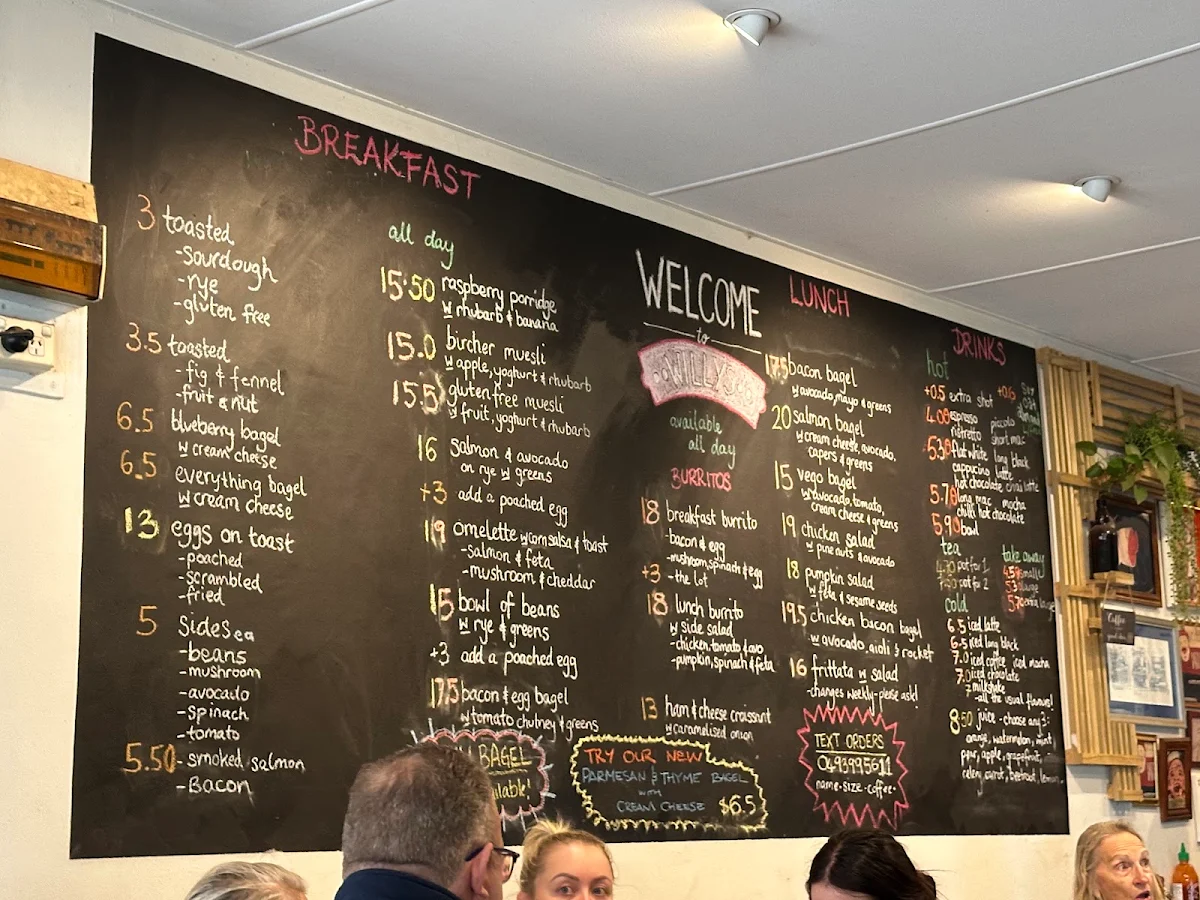 BREAKFAST
3 toasted
-sourdough
-rye
-gluten free
3.5 toasted
-fig & fennel
-fruit & nut
6.5 blueberry bagel
w cream cheese
6.5 everything bagel
w cream cheese
13 eggs on toast
-poached
-scrambled
-fried
5 Sides ea
-beans
-mushroom
-avocado
-spinach
-tomato
5.50 -smoked salmon
-Bacon
all day
15.50 raspberry porridge
w rhubarb & banana
15.0 bircher muesli
w apple, yoghurt & rhubarb
15.5 gluten free muesli
w fruit, yoghurt & rhubarb
16 salmon & avocado
on rye w greens
+3 add a poached egg
19 omelette w corn salsa & toast
-salmon & feta
-mushroom & cheddar
15 bowl of beans
w rye & greens
+3 add a poached egg
17.5 bacon & egg bagel
w tomato chutney & greens
BAGEL
WELCOME
to
WILLYS
available
all day
BURRITOS
18 breakfast burrito
-bacon & egg
-mushroom, spinach & egg
+3 -the lot
18 lunch burrito
w side salad
-chicken, tomato & avo
-pumpkin, spinach & feta
13 ham & cheese croissant
w caramelised onion
TRY OUR NEW
PARMESAN & THYME BAGEL
WITH
CREAM CHEESE $6.5
LUNCH
17.5 bacon bagel
w avocado, mayo & greens
20 salmon bagel
w cream cheese, avocado,
capers & greens
15 vego bagel
w avocado, tomato,
cream cheese & greens
19 chicken salad
w pine nuts & avocado
18 pumpkin salad
w feta & sesame seeds
19.5 chicken bacon bagel
w avocado, aioli & rocket
16 frittata w salad
-changes weekly-please ask!
TEXT ORDERS
0493995611
name-size-coffee-
DRINKS
hot
+0.5 extra shot +0.6
4.00 espresso piccolo
ristretto short mac
5.30 flat white long black
cappucino latte
hot chocolate chai latte
5.70 long mac mocha
chilli hot chocolate
5.90 bowl
tea
pot for 1
pot for 2
take away
small
large
extra large
cold
6.5 iced latte
6.5 iced long black
7.0 iced coffee iced mocha
7.0 iced chocolate
7 milkshake
-all the usual flavours!
8.50 juice - choose any 3:
orange, watermelon, mint
pear, apple, grapefruit,
celery, carrot, beetroot, lemon
Coffee